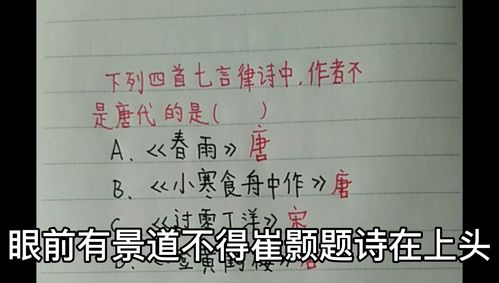 下列四首七言律诗中,作者不
是唐代的是( )
A.《春雨》唐
B.《小寒食舟中作》唐
C.《过零丁洋》宋
眼前有景道不得崔颢题诗在上头
鹤楼》